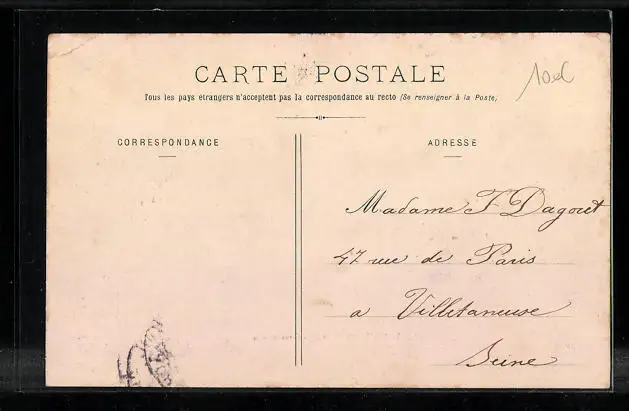 CARTE POSTALE
Tous les pays étrangers n'acceptent pas la correspondance au recto (Se renseigner à la Poste)
CORRESPONDANCE
ADRESSE
Madame F Dagout
47 rue de Paris
a Villetaneuse
Seine